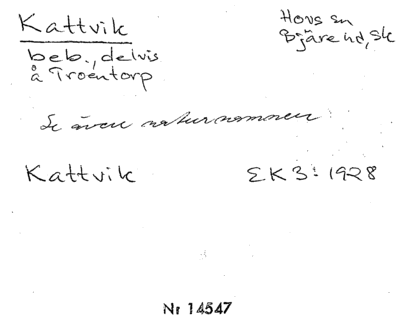 Kattvik
Hovs sn
Bjäre hd, Sk
beb., delvis
å Troentorp
Se även naturnamnen
Kattvik
EK3: 1928
Nr 14547